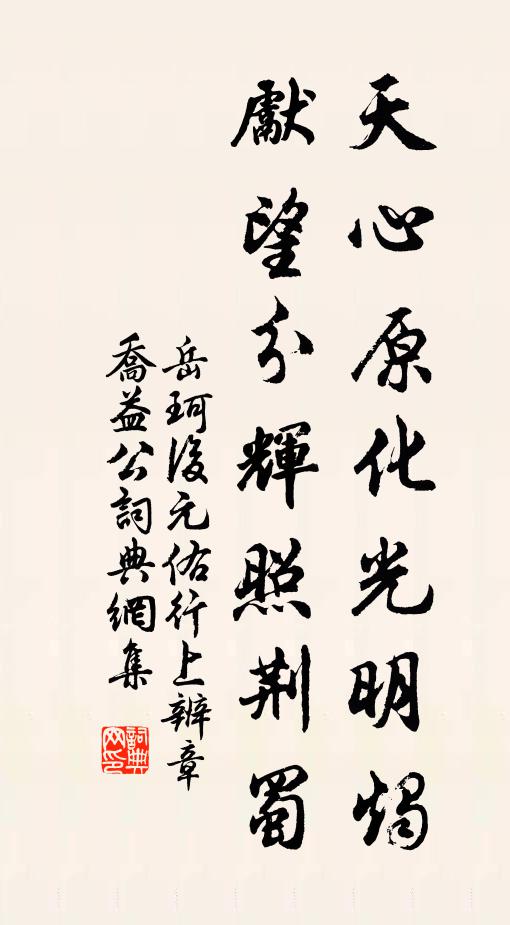 天心原化光明燭
獻望分輝照荆蜀
岳珂後元佑行上辨章
喬益公詞典網集
詞典網印